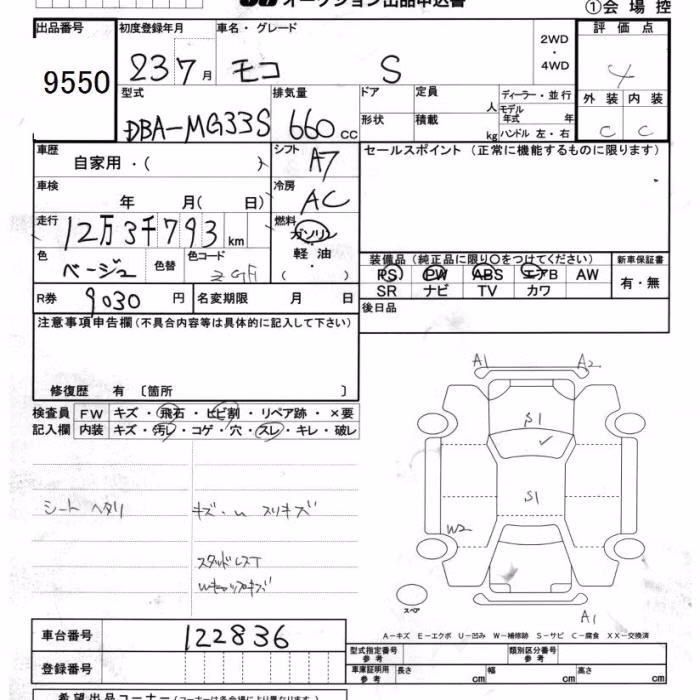 オークション出品申込書
①会場控
出品番号
9550
初度登録年月
23 7月
車名・グレード
モコ S
2WD
・
4WD
評価点
4
外装 内装
C C
型式
DBA-MG33S
排気量
660 cc
ドア
形状
定員 人
積載 kg
ディーラー・並行
モデル年式 年
ハンドル 左・右
車歴
自家用・( )
シフト
A7
セールスポイント (正常に機能するものに限ります)
車検
年 月( 日)
冷房
AC
走行
12万3千793 km
燃料
ガソリン
・
軽油
・
( )
色
ベージュ
色替
色コード
装備品 (純正品に限り○をつけてください)
PS PW ABS エアB AW
SR ナビ TV カワ
新車保証書
有・無
R券
9030 円
名変期限 月 日
後日品
注意事項申告欄 (不具合内容等は具体的に記入して下さい)
修復歴 有 〔箇所 〕
検査員記入欄
FW キズ・飛石・ヒビ割・リペア跡・×要
内装 キズ・汚レ・コゲ・穴・スレ・キレ・破レ
シート ヘタリ
キズ・u スリキズ
スタッドレスT
Wキャップキズ
A1 A2
S1
S1
W2
A1
スペア
A－キズ E－エクボ U－凹み W－補修跡 S－サビ C－腐食 XX－交換済
車台番号
122836
登録番号
型式指定番号 参考
類別区分番号 参考
車庫証明用 参考
長さ cm 幅 cm 高さ cm
希望出品コーナー (コーナーは各会場により異なります)